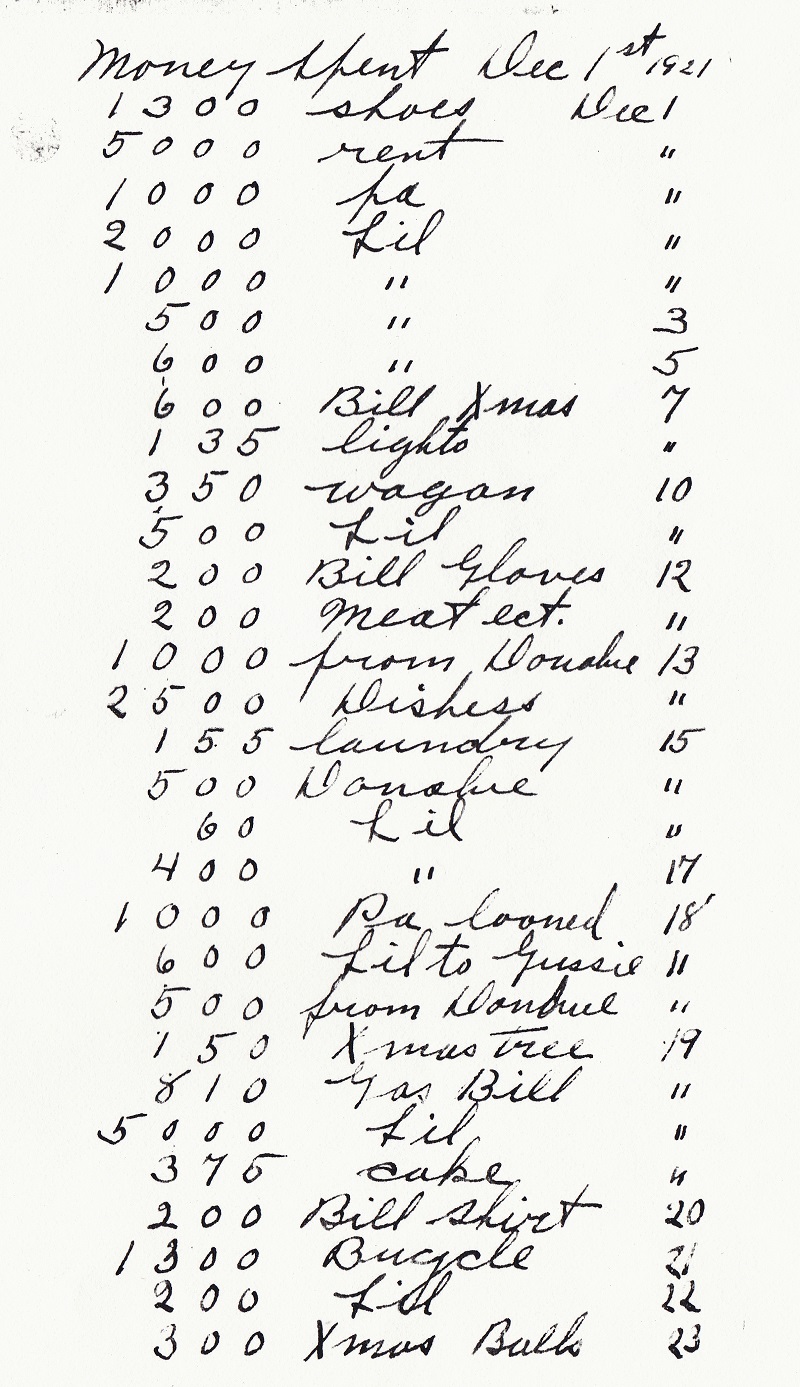 Money Spent Dec 1st 1921
1300 shoes Dec 1
5000 rent "
1000 pa "
2000 Lil "
1000 " "
500 " 3
600 " 5
600 Bill Xmas 7
135 lights "
350 wagon 10
500 Lil "
200 Bill Gloves 12
200 Meat ect. "
1000 from Donahue 13
2500 Dishess "
155 laundry 15
500 Donahue "
60 Lil "
400 " 17
1000 Pa looned 18
600 Lil to Gussie "
500 from Donahue "
150 Xmas tree 19
810 Gas Bill "
5000 Lil "
375 cake "
200 Bill shirt 20
1300 Bucycle 21
200 Lil 22
300 Xmas Balls 23